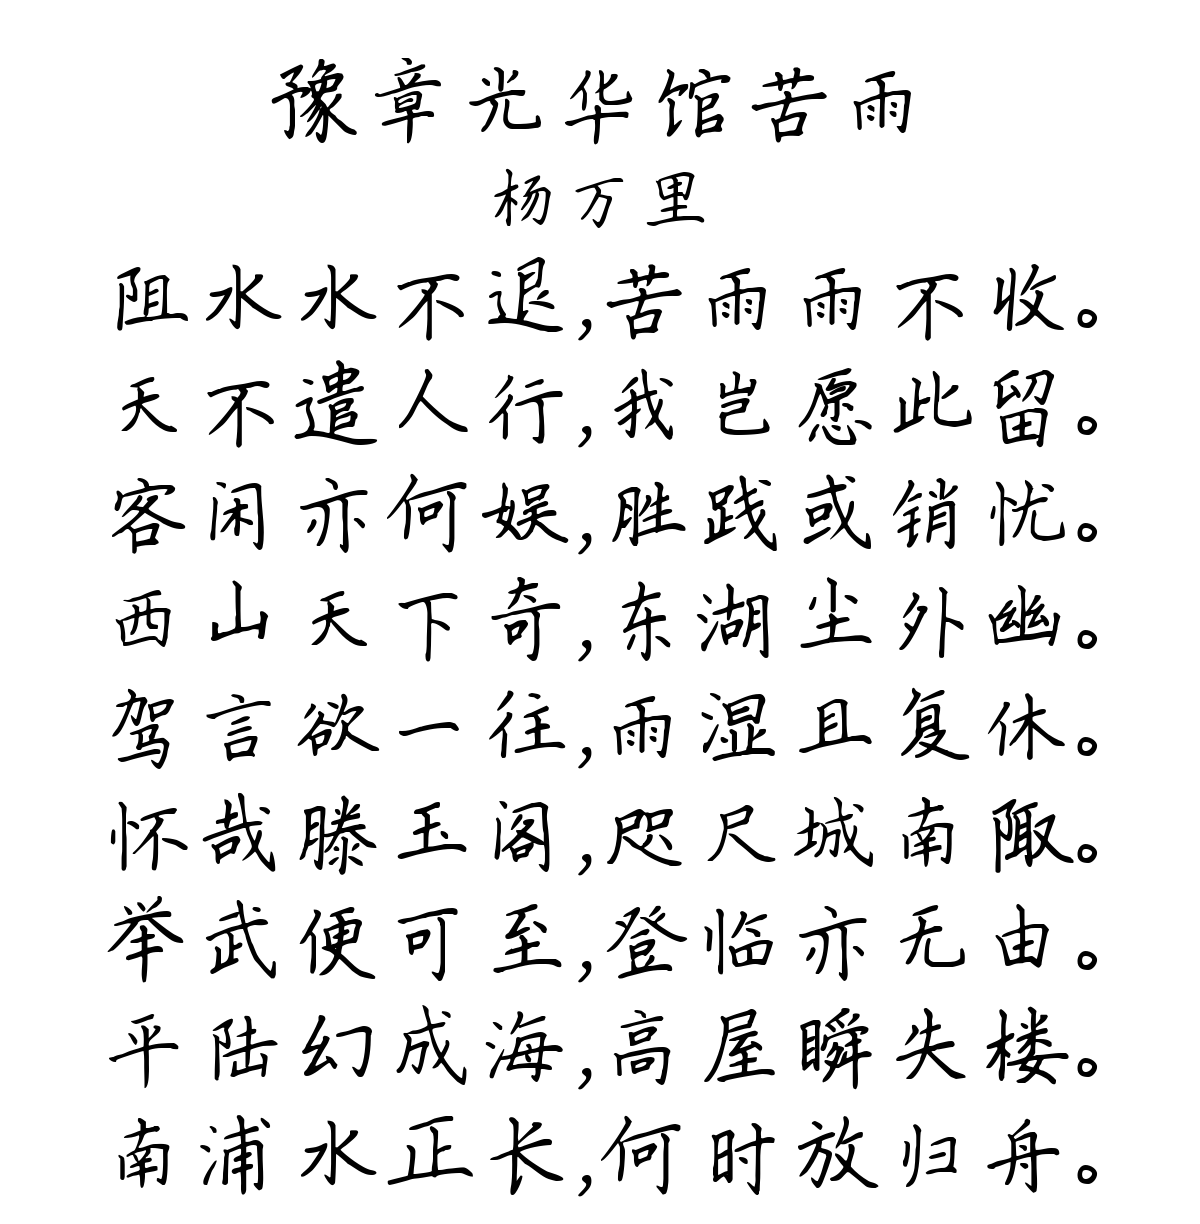 豫章光华馆苦雨
杨万里
阻水水不退,苦雨雨不收。
天不遣人行,我岂愿此留。
客闲亦何娱,胜践或销忧。
西山天下奇,东湖尘外幽。
驾言欲一往,雨湿且复休。
怀哉滕玉阁,咫尺城南陬。
举武便可至,登临亦无由。
平陆幻成海,高屋瞬失楼。
南浦水正长,何时放归舟。